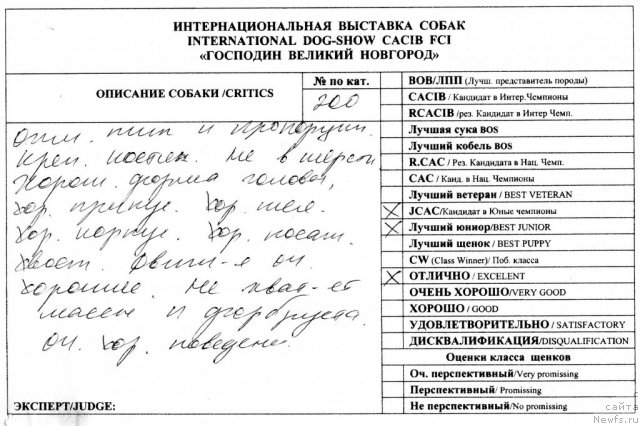 ИНТЕРНАЦИОНАЛЬНАЯ ВЫСТАВКА СОБАК
INTERNATIONAL DOG-SHOW CACIB FCI
«ГОСПОДИН ВЕЛИКИЙ НОВГОРОД»
ОПИСАНИЕ СОБАКИ /CRITICS
№ по кат.
200
Отл. тип и пропорции.
Креп. костяк. Не в шерсти
Хорош. форма головы,
хор. прикус. Хор. шея.
Хор. корпус. Хор. посаж.
хвост. Движ-я оч.
хорошие. Не хват-ет
массы и форбруста.
Оч. хор. поведение.
ЭКСПЕРТ/JUDGE:
ВОВ/ЛПП (Лучш. представитель породы)
CACIB / Кандидат в Интер.Чемпионы
RCACIB /рез. Кандидат в Интер Чемп.
Лучшая сука BOS
Лучший кобель BOS
R.CAC / Рез. Кандидата в Нац. Чемп.
CAC / Канд. в Нац. Чемпионы
Лучший ветеран / BEST VETERAN
JCAC/Кандидат в Юные чемпионы
Лучший юниор/BEST JUNIOR
Лучший щенок / BEST PUPPY
CW (Class Winner)/ Поб. класса
ОТЛИЧНО / EXCELENT
ОЧЕНЬ ХОРОШО/VERY GOOD
ХОРОШО / GOOD
УДОВЛЕТВОРИТЕЛЬНО / SATISFACTORY
ДИСКВАЛИФИКАЦИЯ/DISQUALIFICATION
Оценки класса щенков
Оч. перспективный/Very promissing
Перспективный/ Promissing
Не перспективный/No promissing
сайта
Newfs.ru